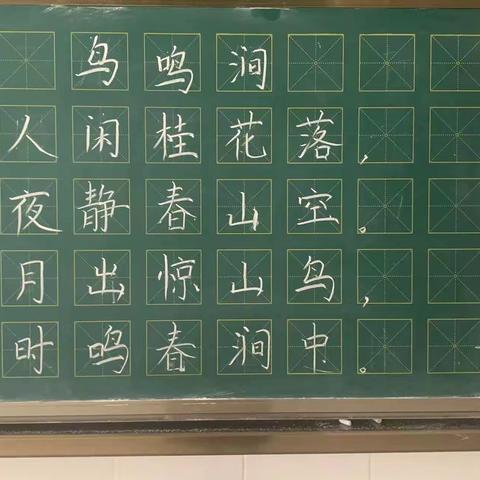 鸟鸣涧
人闲桂花落，
夜静春山空。
月出惊山鸟，
时鸣春涧中。